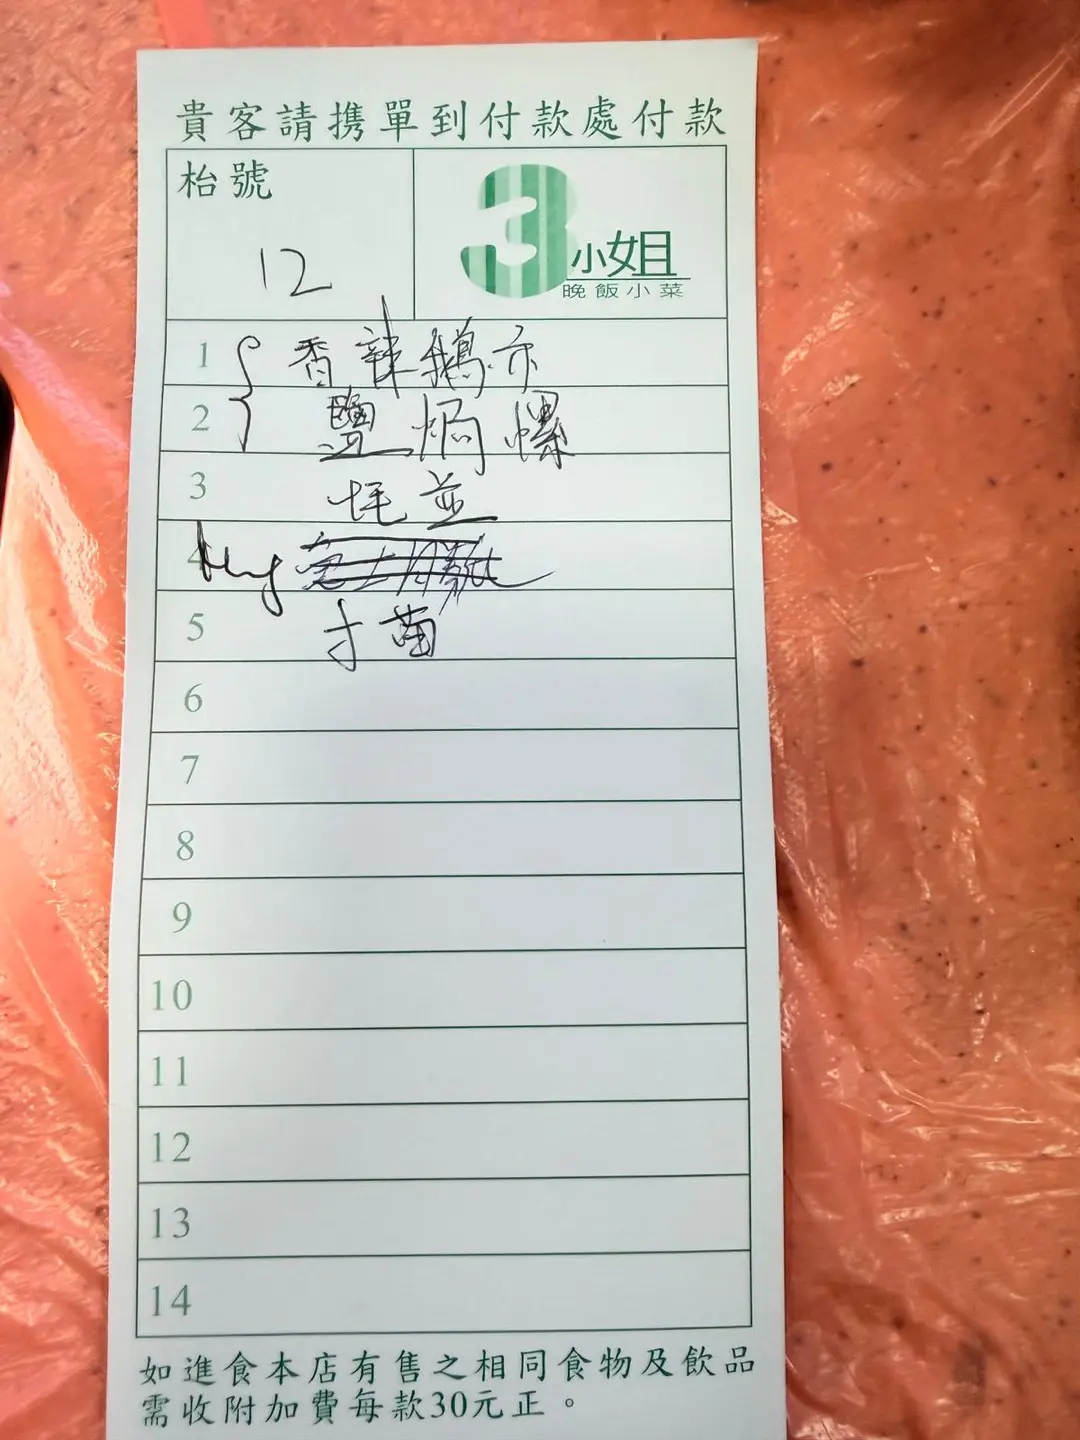 貴客請携單到付款處付款
枱號
12
3小姐
晚飯小菜
1 香辣鵝亦
2 鹽焗螺
3
4
5 寸苗
6
7
8
9
10
11
12
13
14
如進食本店有售之相同食物及飲品
需收附加費每款30元正。